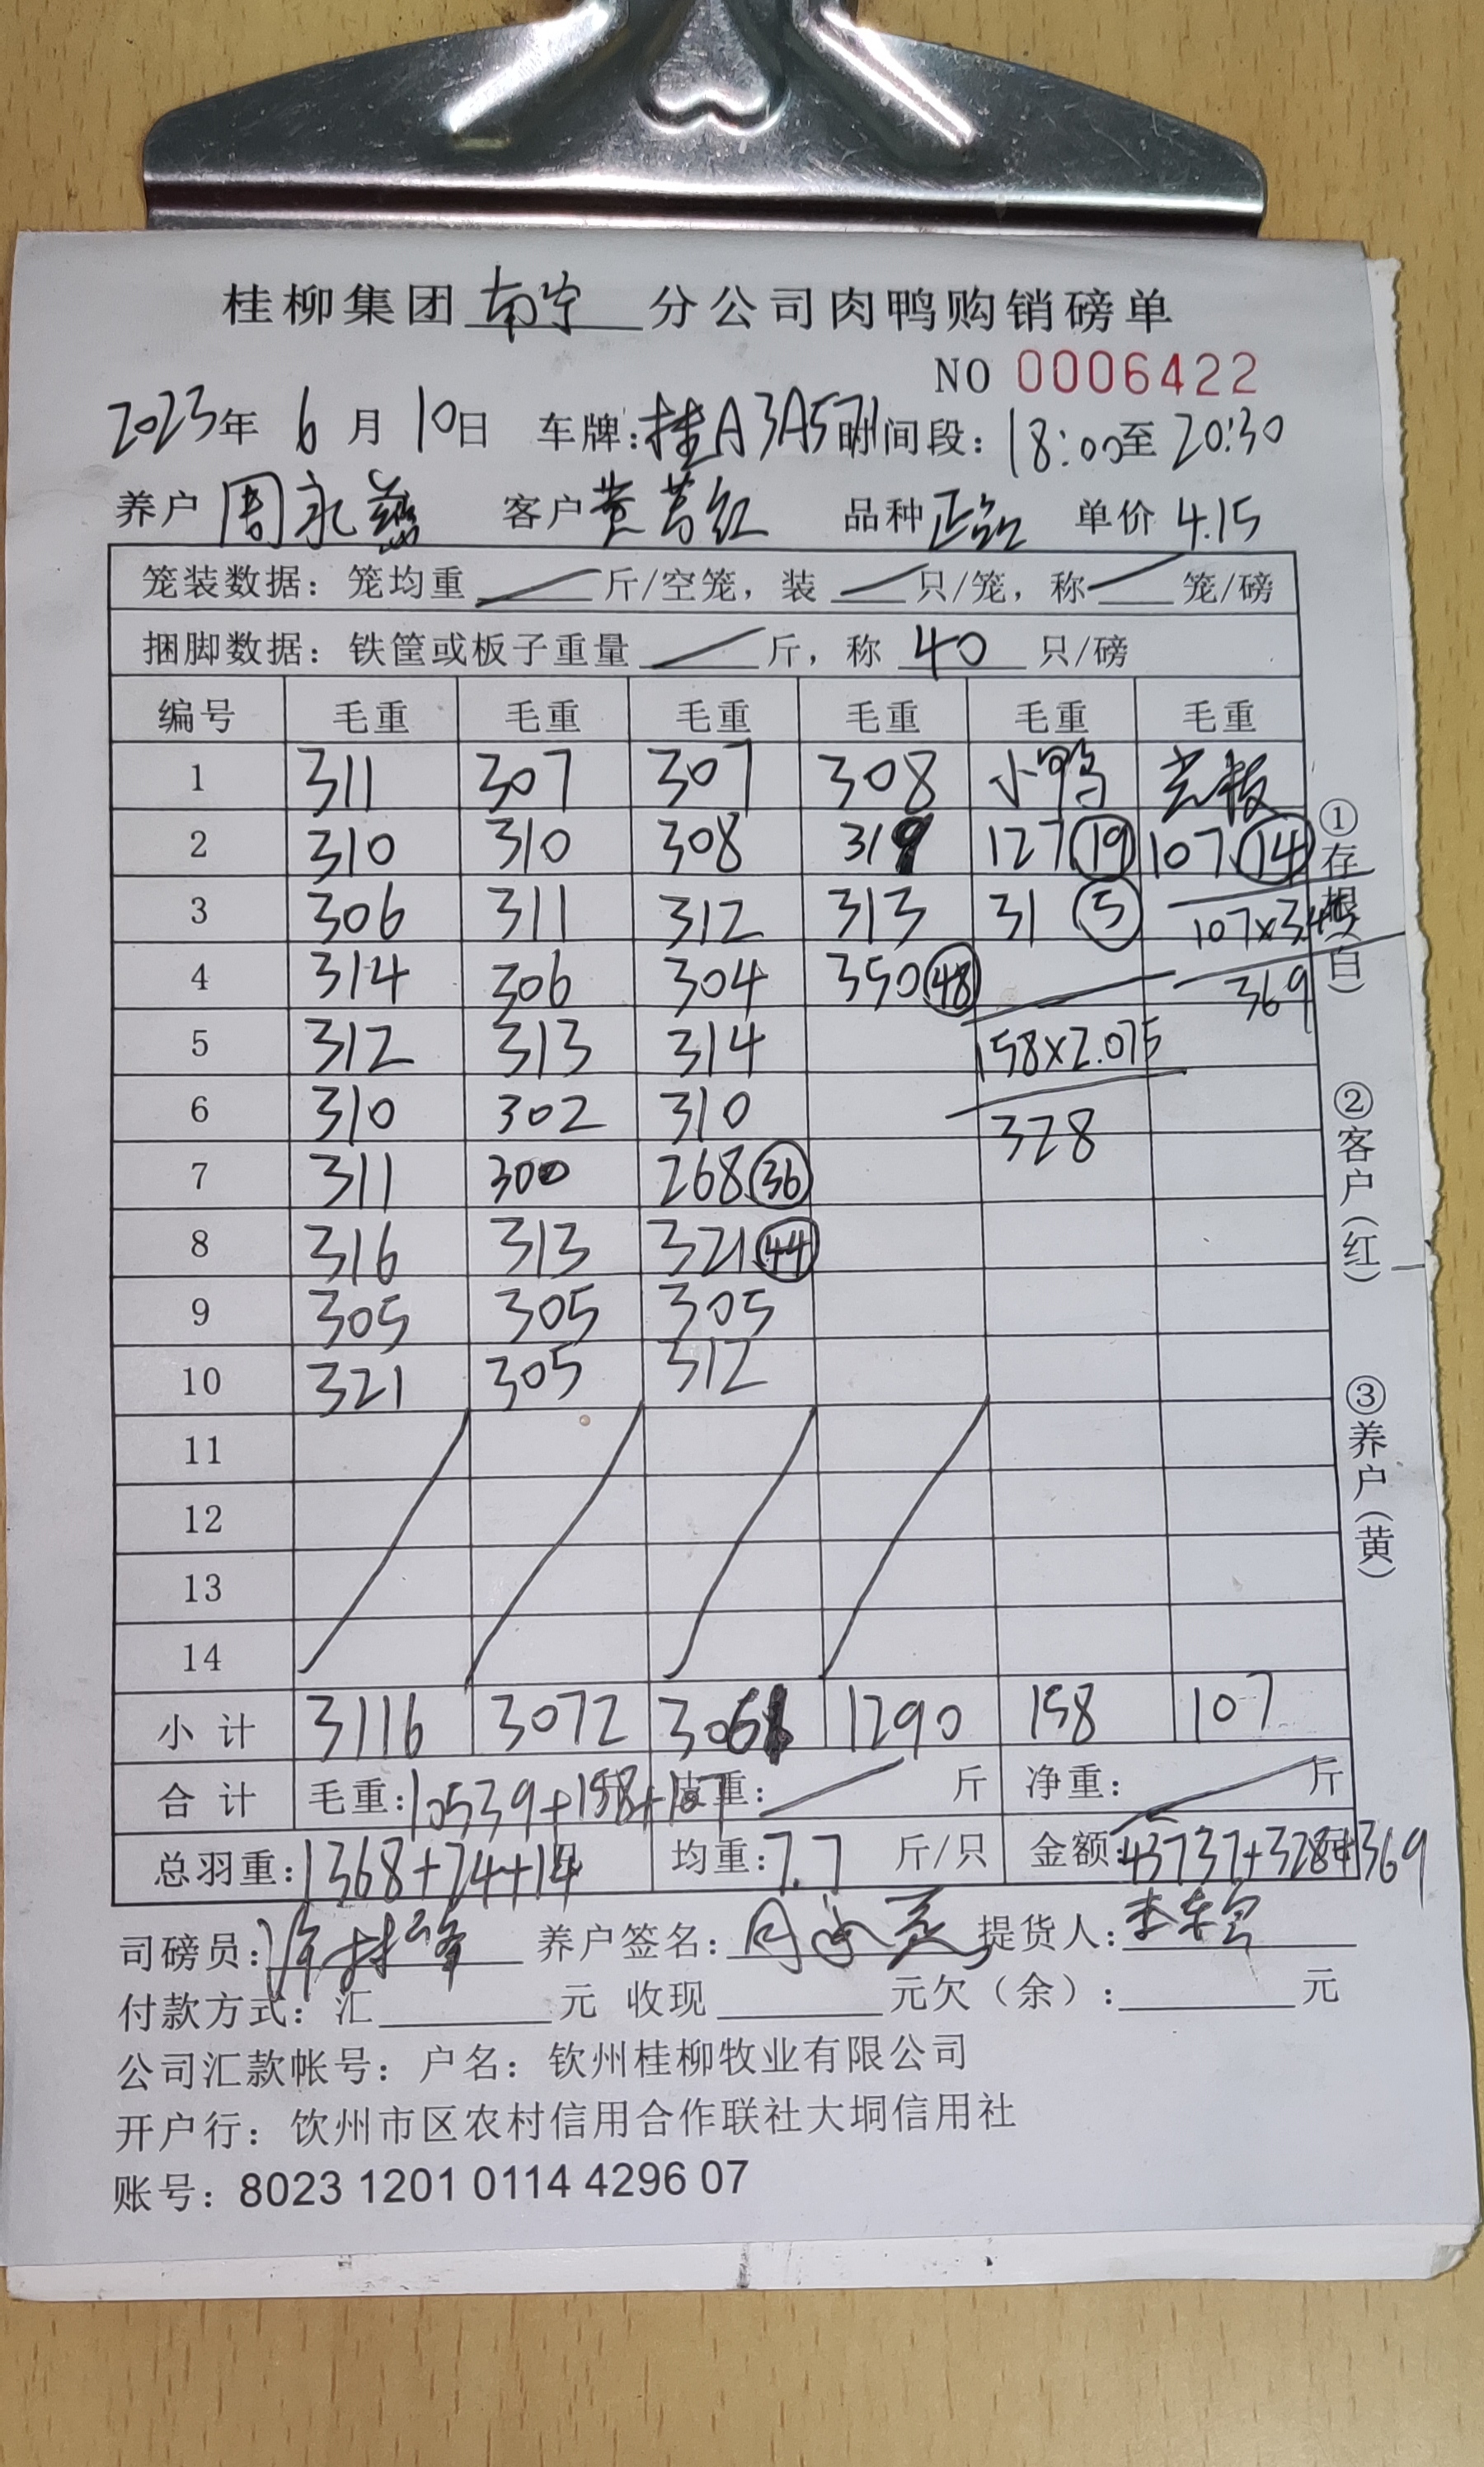 桂柳集团 南宁 分公司肉鸭购销磅单
NO 0006422
2023年 6月 10日 车牌:桂A3A571 时间段:18:00至 20:30
养户 周永 客户 黄 红 品种 正 单价 4.15
笼装数据:笼均重 / 斤/空笼,装 / 只/笼,称 / 笼/磅
捆脚数据:铁筐或板子重量 / 斤,称 40 只/磅
编号 毛重 毛重 毛重 毛重 毛重 毛重
1 311 307 307 308 小鸭 光板
2 310 310 308 319 127 19 107 14
3 306 311 312 313 31 5 107×3.45
4 314 306 304 350 48 369
5 312 313 314 158×2.075
6 310 302 310 328
7 311 300 268 36
8 316 313 321 44
9 305 305 305
10 321 305 312
11
12
13
14
小计 3116 3072 3061 1290 158 107
合计 毛重:10539+158+107 皮重: / 斤 净重: / 斤
总羽重:1368+24+14 均重:7.7 斤/只 金额:43737+328+369
司磅员: 养户签名: 周永 提货人:李
付款方式:汇 元 收现 元欠(余):元
公司汇款帐号:户名:钦州桂柳牧业有限公司
开户行:饮州市区农村信用合作联社大垌信用社
账号:8023 1201 0114 4296 07
①存根(白)
②客户(红)
③养户(黄)